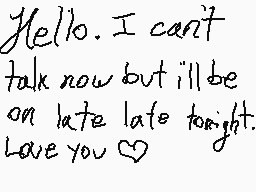 Hello. I can't
talk now but i'll be
on late late tonight.
Love you ♡